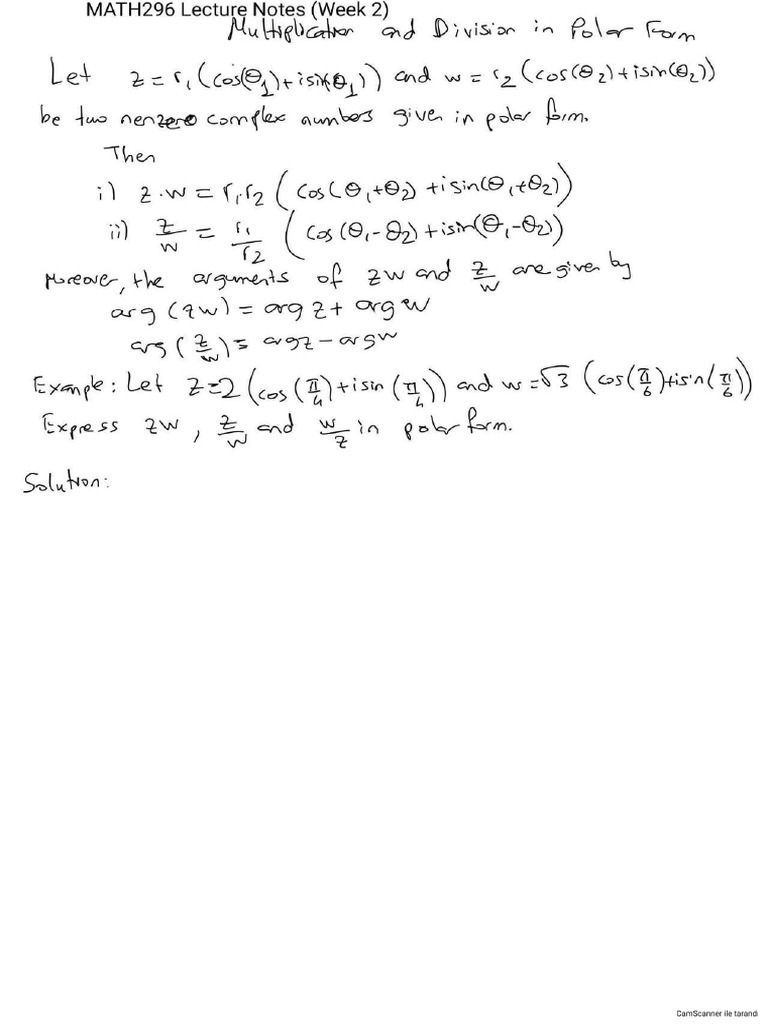 MATH296 Lecture Notes (Week 2)
Multiplication and Division in Polar Form
Let z = r₁(cos(θ₁)+isin(θ₁)) and w = r₂(cos(θ₂)+isin(θ₂))
be two nenzero complex numbers given in polar form.
Then
i) z·w = r₁.r₂ (cos(θ₁+θ₂) + isin(θ₁+θ₂))
ii) z/w = r₁/r₂ (cos(θ₁-θ₂)+isin(θ₁-θ₂))
Moreover, the arguments of zw and z/w are given by
arg (zw) = arg z + arg w
arg (z/w) = argz - argw
Example: Let z=2 (cos(π/4)+isin(π/4)) and w=√3 (cos(π/6)+isin(π/6))
Express zw, z/w and w/z in polar form.
Solution:
CamScanner ile tarandı